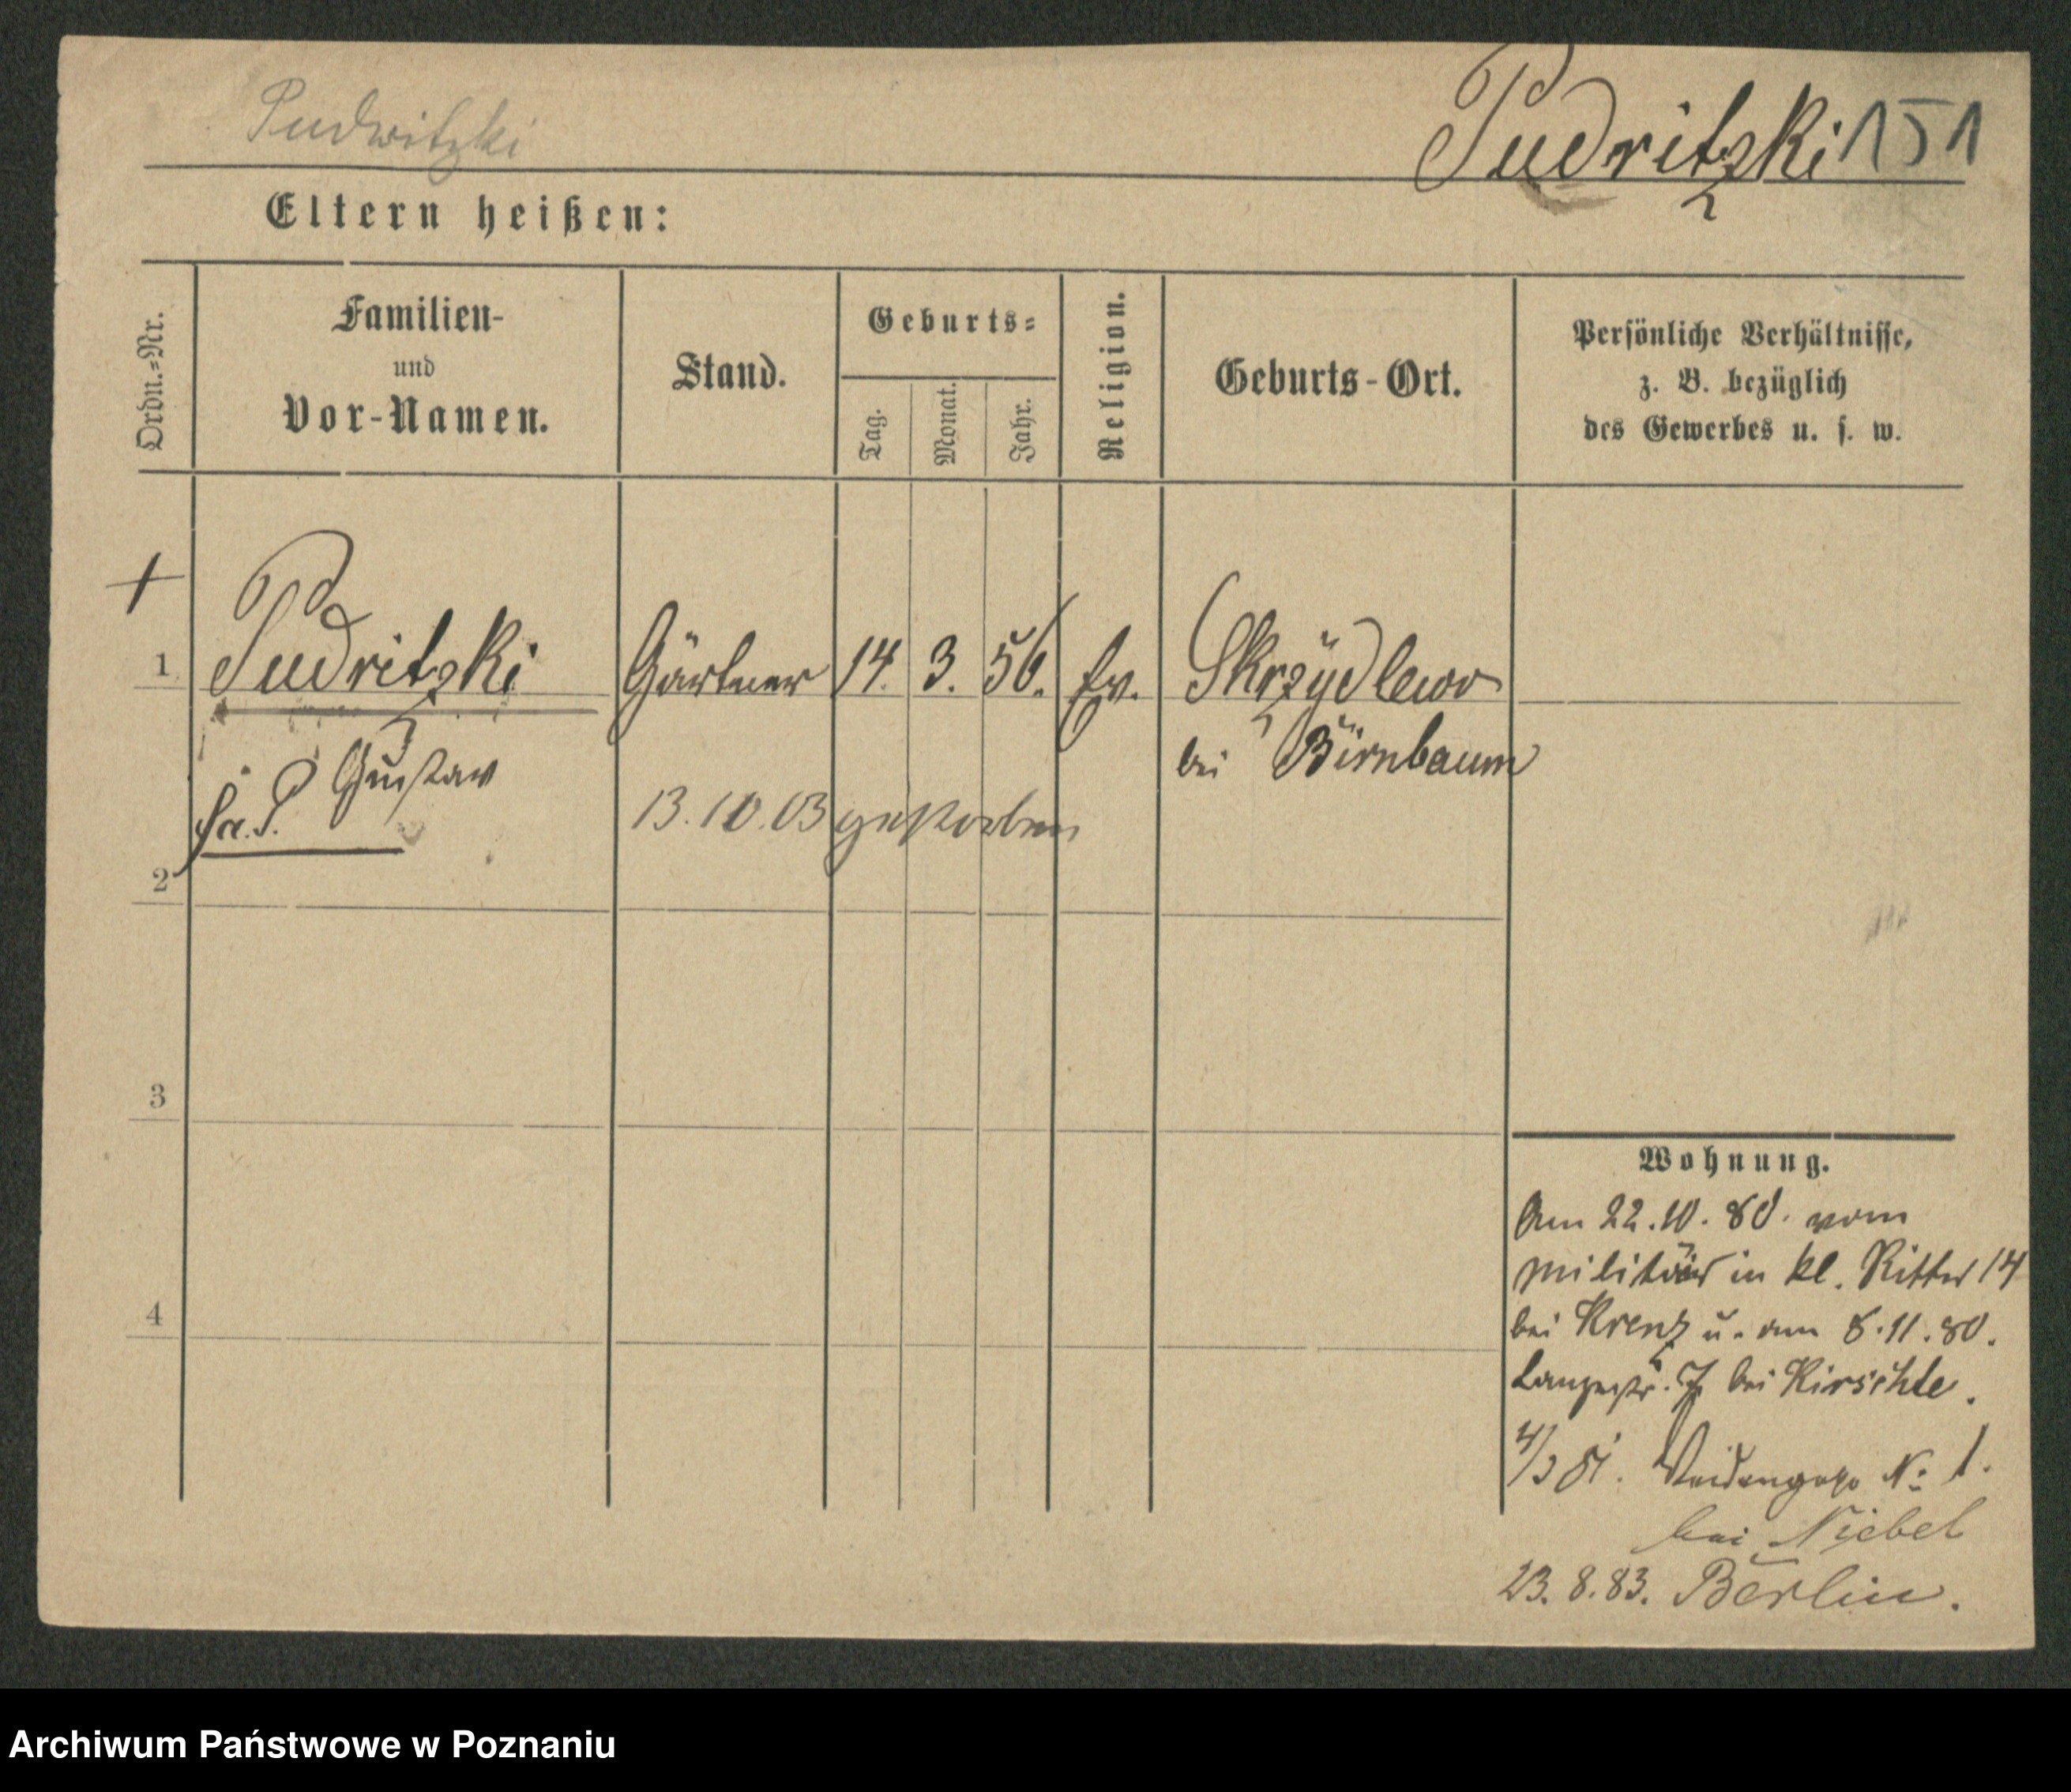 Pudwitzki
Pudritzki 151
Eltern heißen:
Ordn.=Nr.
Familien-
und
Vor-Namen.
Stand.
Geburts=
Tag.
Monat.
Jahr.
Religion.
Geburts-Ort.
Persönliche Verhältnisse,
z. B. bezüglich
des Gewerbes u. s. w.
1 Pudritzki Gärtner 14. 3. 56. Ev. Skrzydlewo
Gustav bei Birnbaum
13.10.03 gestorben
2
3
4
Wohnung.
Am 22.10.80. vom
Militär in kl. Ritter 14
bei Krenz u. am 8.11.80.
Langestr. 7 bei Kirschte.
4/3 81. Weidengasse No 1.
bei Niebel
23.8.83. Berlin.
Archiwum Państwowe w Poznaniu